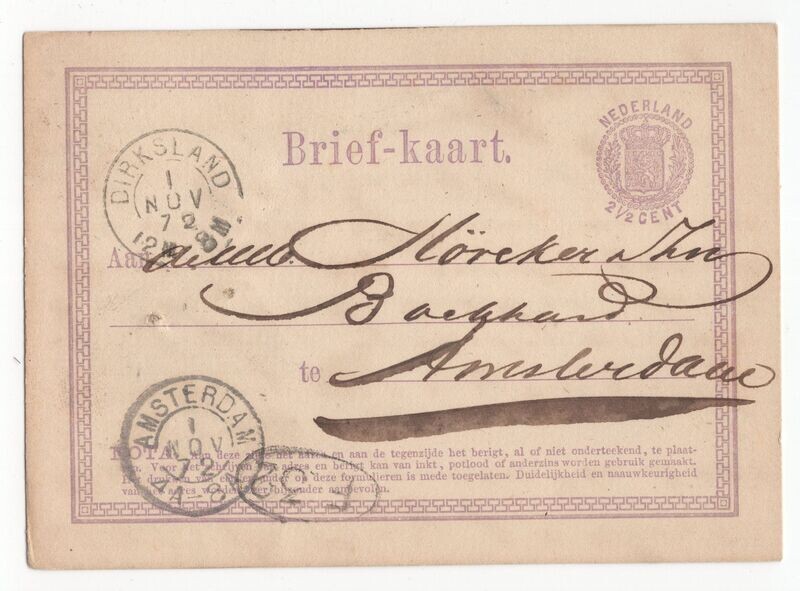 NEDERLAND
2½ CENT
Brief-kaart.
DIRKSLAND
1
NOV
72
12M 8M
Aan Höveker & Zn
Boekhand.
te Amsterdam
AMSTERDAM
1
NOV
72
NOTA. Aan deze zijde het adres en aan de tegenzijde het berigt, al of niet onderteekend, te plaat-
sen. Voor het schrijven van adres en berigt kan van inkt, potlood of anderzins worden gebruik gemaakt.
Het drukken van een of ander op deze formulieren is mede toegelaten. Duidelijkheid en naauwkeurigheid
van het adres worden zeer bijzonder aanbevolen.